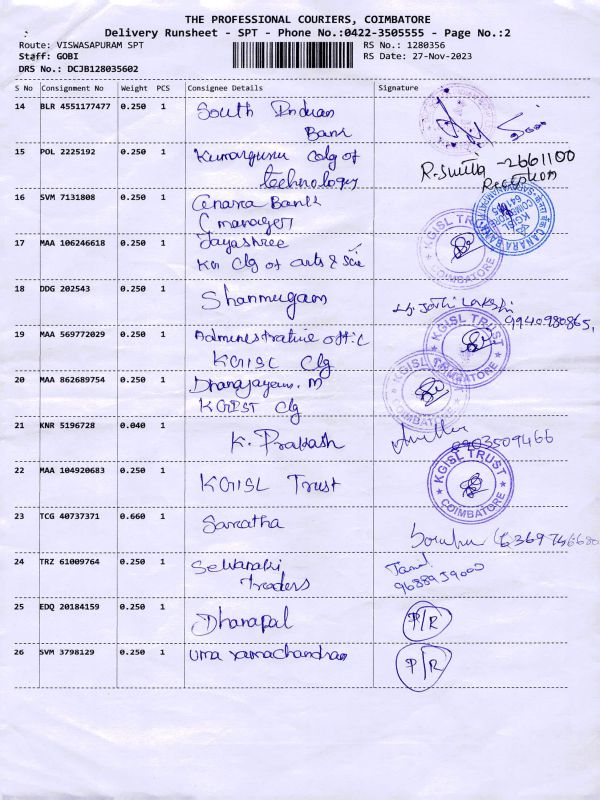 THE PROFESSIONAL COURIERS, COIMBATORE
Delivery Runsheet - SPT - Phone No.:0422-3505555 - Page No.:2
Route: VISWASAPURAM SPT
RS No.: 1280356
Staff: GOBI
RS Date: 27-Nov-2023
DRS No.: DCJB128035602
S No Consignment No Weight PCS Consignee Details Signature
14 BLR 4551177477 0.250 1 South Indian
Bank
15 POL 2225192 0.250 1 Kumaraguru Colg of
technology
R. -2661100
Reception
16 SVM 7131808 0.250 1 Canara Bank
C manager
CANARA BANK
KGISL
17 MAA 106246618 0.250 1 Jayashree
KGI Clg of arts & Sci
KGISL TRUST
COIMBATORE
18 DDG 202543 0.250 1 Shanmugam
9940980865,
19 MAA 569772029 0.250 1 Administrative offic
KGISL Clg
KGISL TRUST
COIMBATORE
20 MAA 862689754 0.250 1 Dhanajayan. M
KGIST Clg
KGISL TRUST
COIMBATORE
21 KNR 5196728 0.040 1 K. Prakash
9903509466
22 MAA 104920683 0.250 1 KGISL Trust
KGISL TRUST
COIMBATORE
23 TCG 40737371 0.660 1 Saratha
24 TRZ 61009764 0.250 1 Selvarani
traders
Tamil
25 EDQ 20184159 0.250 1 Dhanapal
P/R
26 SVM 3798129 0.250 1 Uma ramachandran
P/R